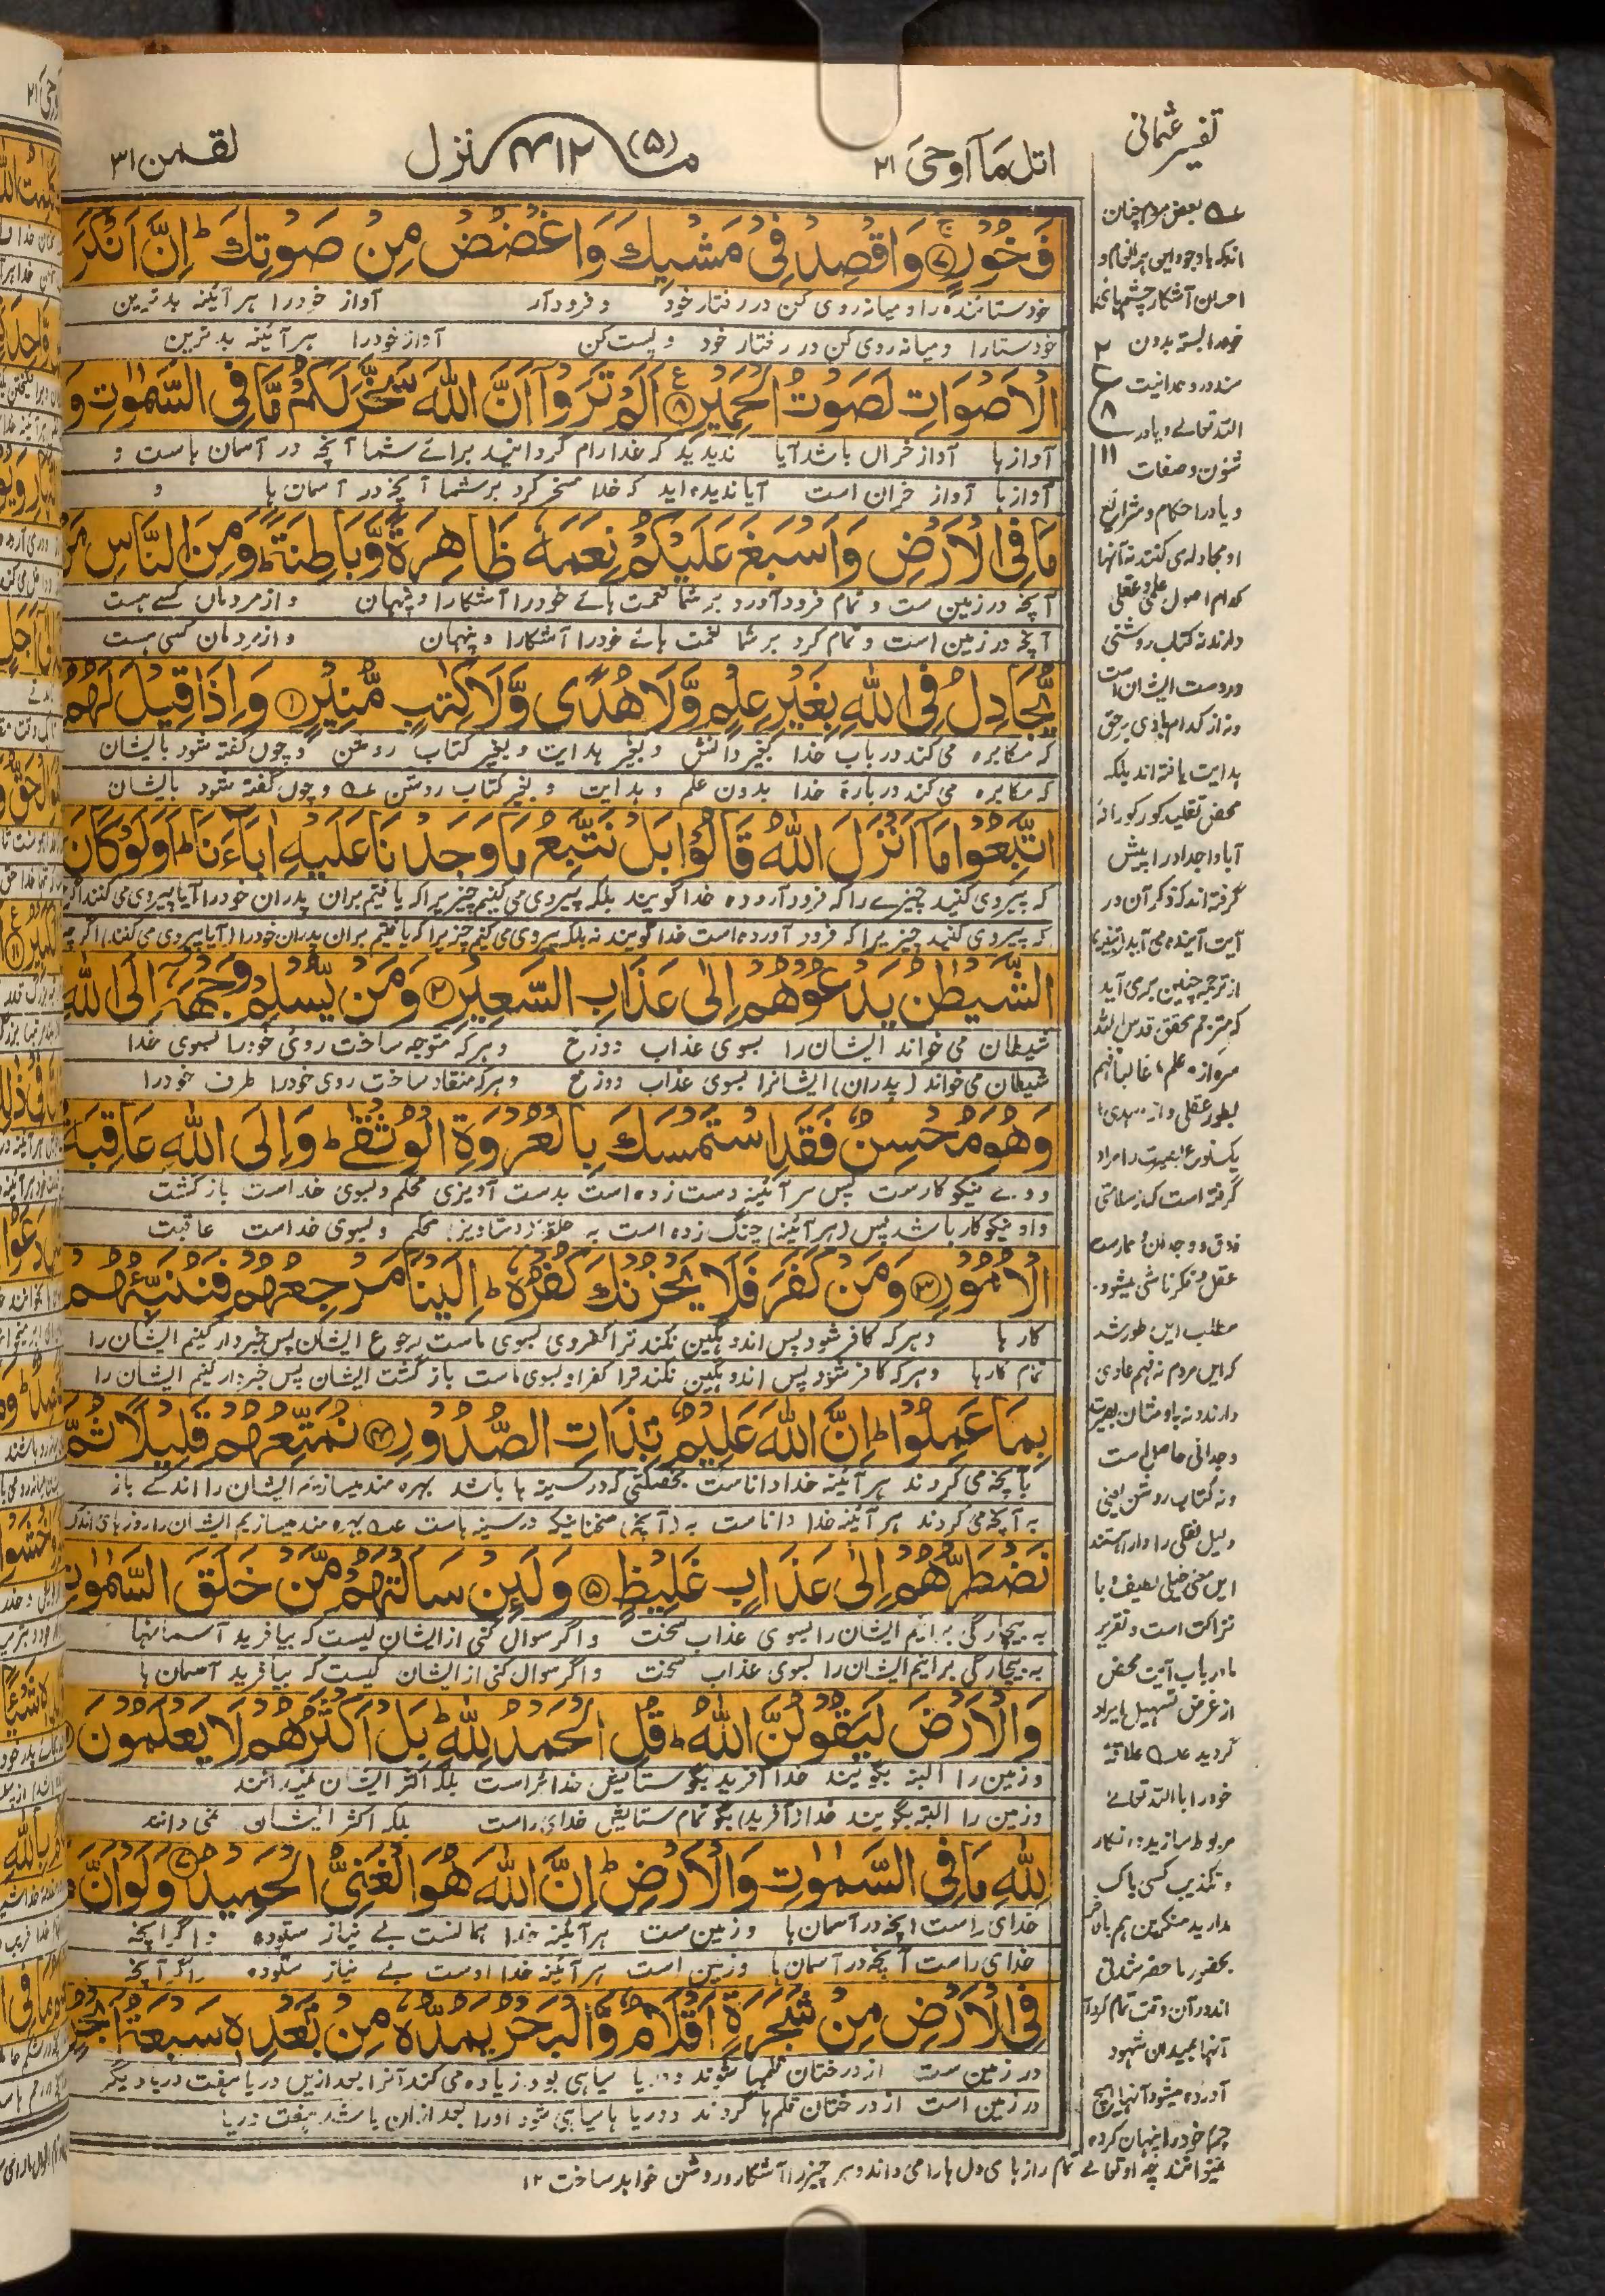 تفسیر عثمانی
اتل مآ اوحیَ ۲۱
منزل (۵)
۴۱۲
لقمٰن ۳۱
فَخُوْرٍ ۷ وَاقْصِدْ فِیْ مَشْیِكَ وَاغْضُضْ مِنْ صَوْتِكَ ؕ اِنَّ اَنْكَرَ
خودستاننده را و میانه روی کن در رفتار خود و فرود آر آواز خودرا هر آئینه بدترین
خودستارا و میانه روی کن در رفتار خود و پست کن آواز خودرا هر آئینه بدترین
الْاَصْوَاتِ لَصَوْتُ الْحَمِیْرِ ۸ اَلَمْ تَرَوْا اَنَّ اللّٰهَ سَخَّرَ لَكُمْ مَّا فِی السَّمٰوٰتِ وَ
آوازها آواز خران باشد آیا ندیدید که خدا رام گردانید برائے شما آنچه در آسمان هاست و
آوازها آواز خران است آیا ندیده اید که خدا مسخر کرد بر شما آنچه در آسمان ها و
مَا فِی الْاَرْضِ وَاَسْبَغَ عَلَیْكُمْ نِعَمَهٗ ظَاهِرَةً وَّبَاطِنَةً ؕ وَمِنَ النَّاسِ مَنْ
آنچه در زمین ست و تمام فرود آورد بر شما نعمت هائے خودرا آشکارا و پنهان و از مردمان کسے هست
آنچه در زمین است و تمام کرد بر شما نعمت هائے خودرا آشکارا و پنهان و از مردمان کسی هست
یُّجَادِلُ فِی اللّٰهِ بِغَیْرِ عِلْمٍ وَّلَا هُدًی وَّلَا كِتٰبٍ مُّنِیْرٍ وَاِذَا قِیْلَ لَهُمُ
که مکابره می کند در باب خدا بغیر دانش و بغیر هدایت و بغیر کتاب روشن و چون گفته شود بایشان
که مکابره می کند دربارهٔ خدا بدون علم و هدایت و بغیر کتاب روشن و چون گفته شود بایشان
اتَّبِعُوْا مَا اَنْزَلَ اللّٰهُ قَالُوْا بَلْ نَتَّبِعُ مَا وَجَدْنَا عَلَیْهِ اٰبَآءَنَا ؕ اَوَلَوْ كَانَ
که پیروی کنید چیزے را که فرود آورده خدا گویند بلکه پیروی می کنیم چیزیرا که یافتیم بران پدران خودرا آیا پیروی می کنند اگرچه
که پیروی کنید چیزیرا که فرود آورده است خدا گویند نه بلکه پیروی می کنیم چیزیرا که یافتیم بران پدران خودرا (آیا پیروی می کنند) اگرچه
الشَّیْطٰنُ یَدْعُوْهُمْ اِلٰی عَذَابِ السَّعِیْرِ وَمَنْ یُّسْلِمْ وَجْهَهٗۤ اِلَی اللّٰهِ
شیطان می خواند ایشان را بسوی عذاب دوزخ و هر که متوجه ساخت روئی خودرا بسوی خدا
شیطان می خواند (پدران) ایشانرا بسوی عذاب دوزخ و هر که منقاد ساخت روی خودرا طرف خودرا
وَهُوَ مُحْسِنٌ فَقَدِ اسْتَمْسَكَ بِالْعُرْوَةِ الْوُثْقٰی ؕ وَاِلَی اللّٰهِ عَاقِبَةُ
و وے نیکوکارست پس هر آئینه دست زده است بدست آویزی محکم و بسوی خداست بازگشت
و او نیکوکار باشد پس (هر آئینه) چنگ زده است به حلقه (دستاویز) محکم و بسوی خداست عاقبت
الْاُمُوْرِ وَمَنْ كَفَرَ فَلَا یَحْزُنْكَ كُفْرُهٗ ؕ اِلَیْنَا مَرْجِعُهُمْ فَنُنَبِّئُهُمْ
کارها و هر که کافر شود پس اندوهگین نکند ترا کفر وی بسوی ماست رجوع ایشان پس خبردار کنیم ایشان را
تمام کارها و هر که کافر شود پس اندوهگین نکند ترا کفر او بسوی ماست بازگشت ایشان پس خبردار کنیم ایشان را
بِمَا عَمِلُوْا ؕ اِنَّ اللّٰهَ عَلِیْمٌۢ بِذَاتِ الصُّدُوْرِ نُمَتِّعُهُمْ قَلِیْلًا ثُمَّ
بآنچه می کردند هر آئینه خدا داناست بخصلتی که در سینه ها باشد بهره مند میسازیم ایشان را اندکے باز
به آنچه می کردند هر آئینه خدا داناست به (آنچه) سخنانیکه در سینه هاست بهره مند میسازیم ایشان را روزهای اندک
نَضْطَرُّهُمْ اِلٰی عَذَابٍ غَلِیْظٍ ۵ وَلَئِنْ سَاَلْتَهُمْ مَّنْ خَلَقَ السَّمٰوٰتِ
به بیچارگی برانیم ایشان را بسوی عذاب سخت و اگر سوال کنی از ایشان کیست که بیافرید آسمانها
به بیچارگی برانیم ایشان را بسوی عذاب سخت و اگر سوال کنی از ایشان کیست که بیافرید آسمان ها
وَالْاَرْضَ لَیَقُوْلُنَّ اللّٰهُ ؕ قُلِ الْحَمْدُ لِلّٰهِ ؕ بَلْ اَكْثَرُهُمْ لَا یَعْلَمُوْنَ
و زمین را البته بگویند خدا آفرید بگو ستایش خدائراست بلکه اکثر ایشان نمیدانند
و زمین را البته بگویند خدا (آفرید) بگو تمام ستایش خدای راست بلکه اکثر ایشان نمی دانند
لِلّٰهِ مَا فِی السَّمٰوٰتِ وَالْاَرْضِ ؕ اِنَّ اللّٰهَ هُوَ الْغَنِیُّ الْحَمِیْدُ وَلَوْ اَنَّ مَا
خدای راست آنچه در آسمان ها و زمین ست هر آئینه خدا همانست بے نیاز ستوده و اگر آنچه
خدای راست آنچه در آسمان ها و زمین است هر آئینه خدا اوست بے نیاز ستوده و اگر آنچه
فِی الْاَرْضِ مِنْ شَجَرَةٍ اَقْلَامٌ وَّالْبَحْرُ یَمُدُّهٗ مِنْۢ بَعْدِهٖ سَبْعَةُ اَبْحُرٍ
در زمین ست از درختان قلمها شوند و دریا سیاهی بود زیاده می کند آنرا بعد ازین دریا هفت دریا دیگر
در زمین است از درختان قلم ها گردند و دریا ها سیاهی شود اورا بعد ازان باشد هفت دریا
بعض مردم چنان
اندکه باوجود این همه انعام و
احسان آشکار چشمهائے
خودرا بسته بدون
سند در وحدانیت
الله تعالے و یا در
شئون و صفات
و یا در احکام و شرایع
او مجادله می کنند نه آنها
کدام اصول علمی و عقلی
دارند نه کتاب روشنی
در دست ایشان است
و نه از کدام هادی برحق
هدایت یافته اند بلکه
محض تقلید کورکورانه
آبا و اجداد را پیش
گرفته اند که ذکر آن در
آیت آینده می آید (تنبیه)
از ترجمه چنین برمی آید
که مترجم محقق قدس الله
سره از «علم» غالباً فهم
بطور عقلی و از «هدی»
یکنوع بصیرت را مراد
گرفته است که از سلامتی
ذوق و وجدان و ممارست
عقل و فکر ناشی میشود.
مطلب این طور شد
که این مردم نه فهم عادی
دارند و نه باوشان بصیرت
وجدانی حاصل است
و نه کتاب روشن یعنی
دلیل نقلی را دارا هستند
این معنی خیلی لطیف و با
نزاکت است و تقریر
ما در باب آیت محض
از غرض تسهیل ایراد
گردید علاقهٔ
خودرا با الله تعالے
مربوط سازید از انکار
و تکذیب کسی باک
مدارید منکرین هم بالآخر
بحضور ما حضر شدنی
اند در آن وقت تمام کردار
آنها بمیدان شهود
آورده میشود آنها هیچ
چیز خودرا پنهان کرده
نمیتوانند چه او تعالے تمام رازهای دل ها را می داند و هر چیز را آشکار و روشن خواهد ساخت ۱۲